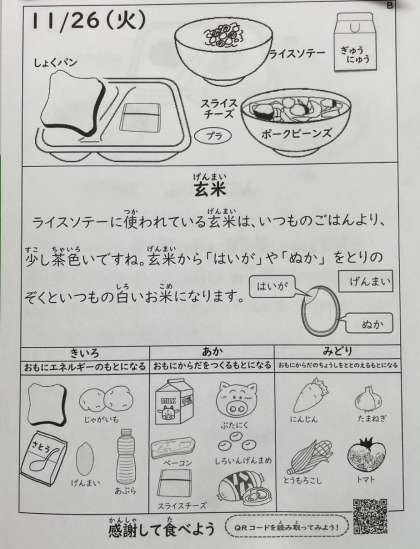 B
11/26(火)
しょくパン
ライスソテー
ぎゅう
にゅう
スライス
チーズ
プラ
ポークビーンズ
げんまい
玄米
つか げんまい
ライスソテーに使われている玄米は、いつものごはんより、
すこ ちゃいろ げんまい
少し茶色いですね。玄米から「はいが」や「ぬか」をとりの
しろ こめ
ぞくといつもの白いお米になります。
はいが
げんまい
ぬか
きいろ
おもにエネルギーのもとになる
じゃがいも
さとう
げんまい
あぶら
あか
おもにからだをつくるもとになる
MILK
ぶたにく
ベーコン
しろいんげんまめ
スライスチーズ
みどり
おもにからだのちょうしをととのえるもとになる
にんじん
たまねぎ
とうもろこし
トマト
かんしゃ た
感謝して食べよう
QRコードを読み取ってみよう!